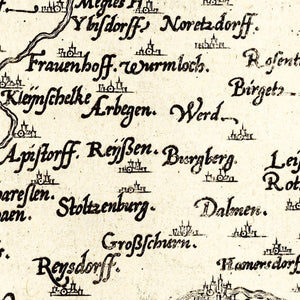 Megies H
Ybisdorff. Noretzdorff.
Frauenhoff. Wurmloch. Rosent
Kleijnschelke Birgetz
Ærbegen. Werd.
Apistorff. Reijßen. Burgberg. Lei
Rot
pareslen.
aen. Stoltzenburg. Dalmen.
Großschurn.
Reysdorff. Hamersdorf